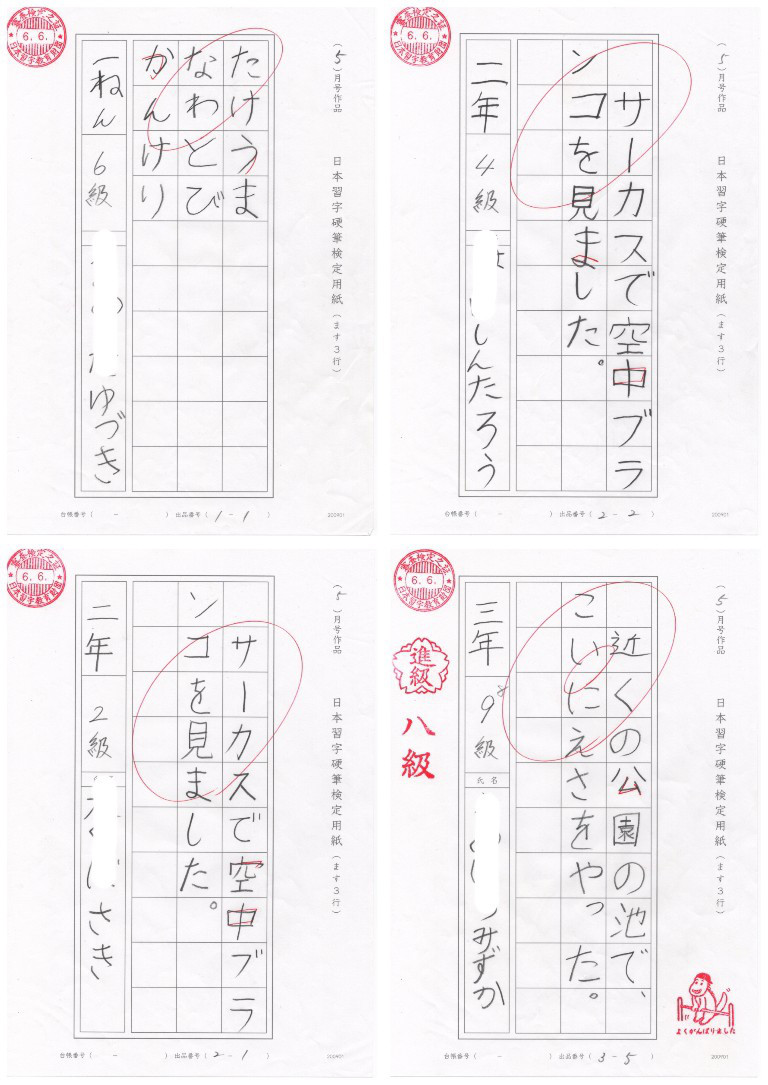 審査検定之証
6.6.
日本習字教育財団
(5)月号作品
日本習字硬筆検定用紙(ます3行)
たけうま
なわとび
かんけり
一ねん
6級
ゆづき
台帳番号( - ) 出品番号(1-1)
200901
審査検定之証
6.6.
日本習字教育財団
(5)月号作品
日本習字硬筆検定用紙(ます3行)
サーカスで空中ブラ
ンコを見ました。
二年
4級
しんたろう
台帳番号( - ) 出品番号(2-2)
200901
審査検定之証
6.6.
日本習字教育財団
(5)月号作品
日本習字硬筆検定用紙(ます3行)
サーカスで空中ブラ
ンコを見ました。
二年
2級
さき
台帳番号( - ) 出品番号(2-1)
200901
審査検定之証
6.6.
日本習字教育財団
(5)月号作品
日本習字硬筆検定用紙(ます3行)
近くの公園の池で、
こいにえさをやった。
三年
9級
8
氏名
みずか
進級
八級
よくがんばりました
台帳番号( - ) 出品番号(3-5)
200901